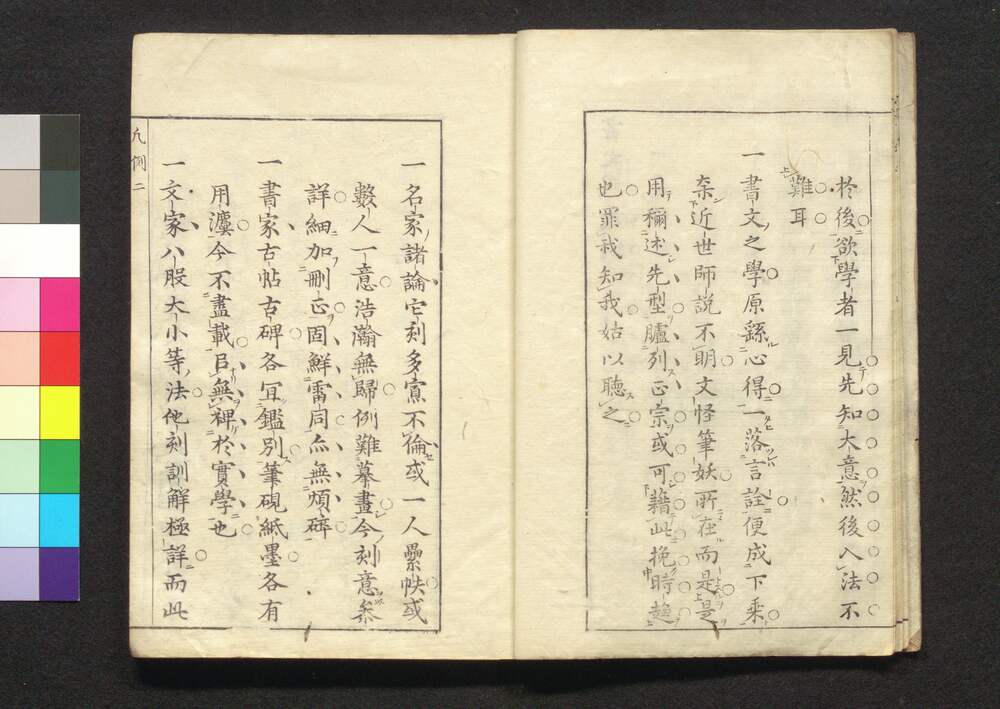 於後欲學者一見先知大意然後入法不
難耳
一書文之學原繇心得一落言詮便成下乘
柰近世師説不明文怪筆妖所在而是是
用稱述先型臚列正宗或可藉此挽時趨
也罪我知我姑以聽之
一名家諸論它刻多寘不倫或一人疊帙或
數人一意浩瀚無歸例難摹畫今刻意叅
詳細加刪正固鮮雷同亦無煩碎
一書家古帖古碑各冝鑑別筆硯紙墨各有
用瀍今不盡載㠯無裨於實學也
一文家八股大小等法他刻訓解極詳而此
凡例二